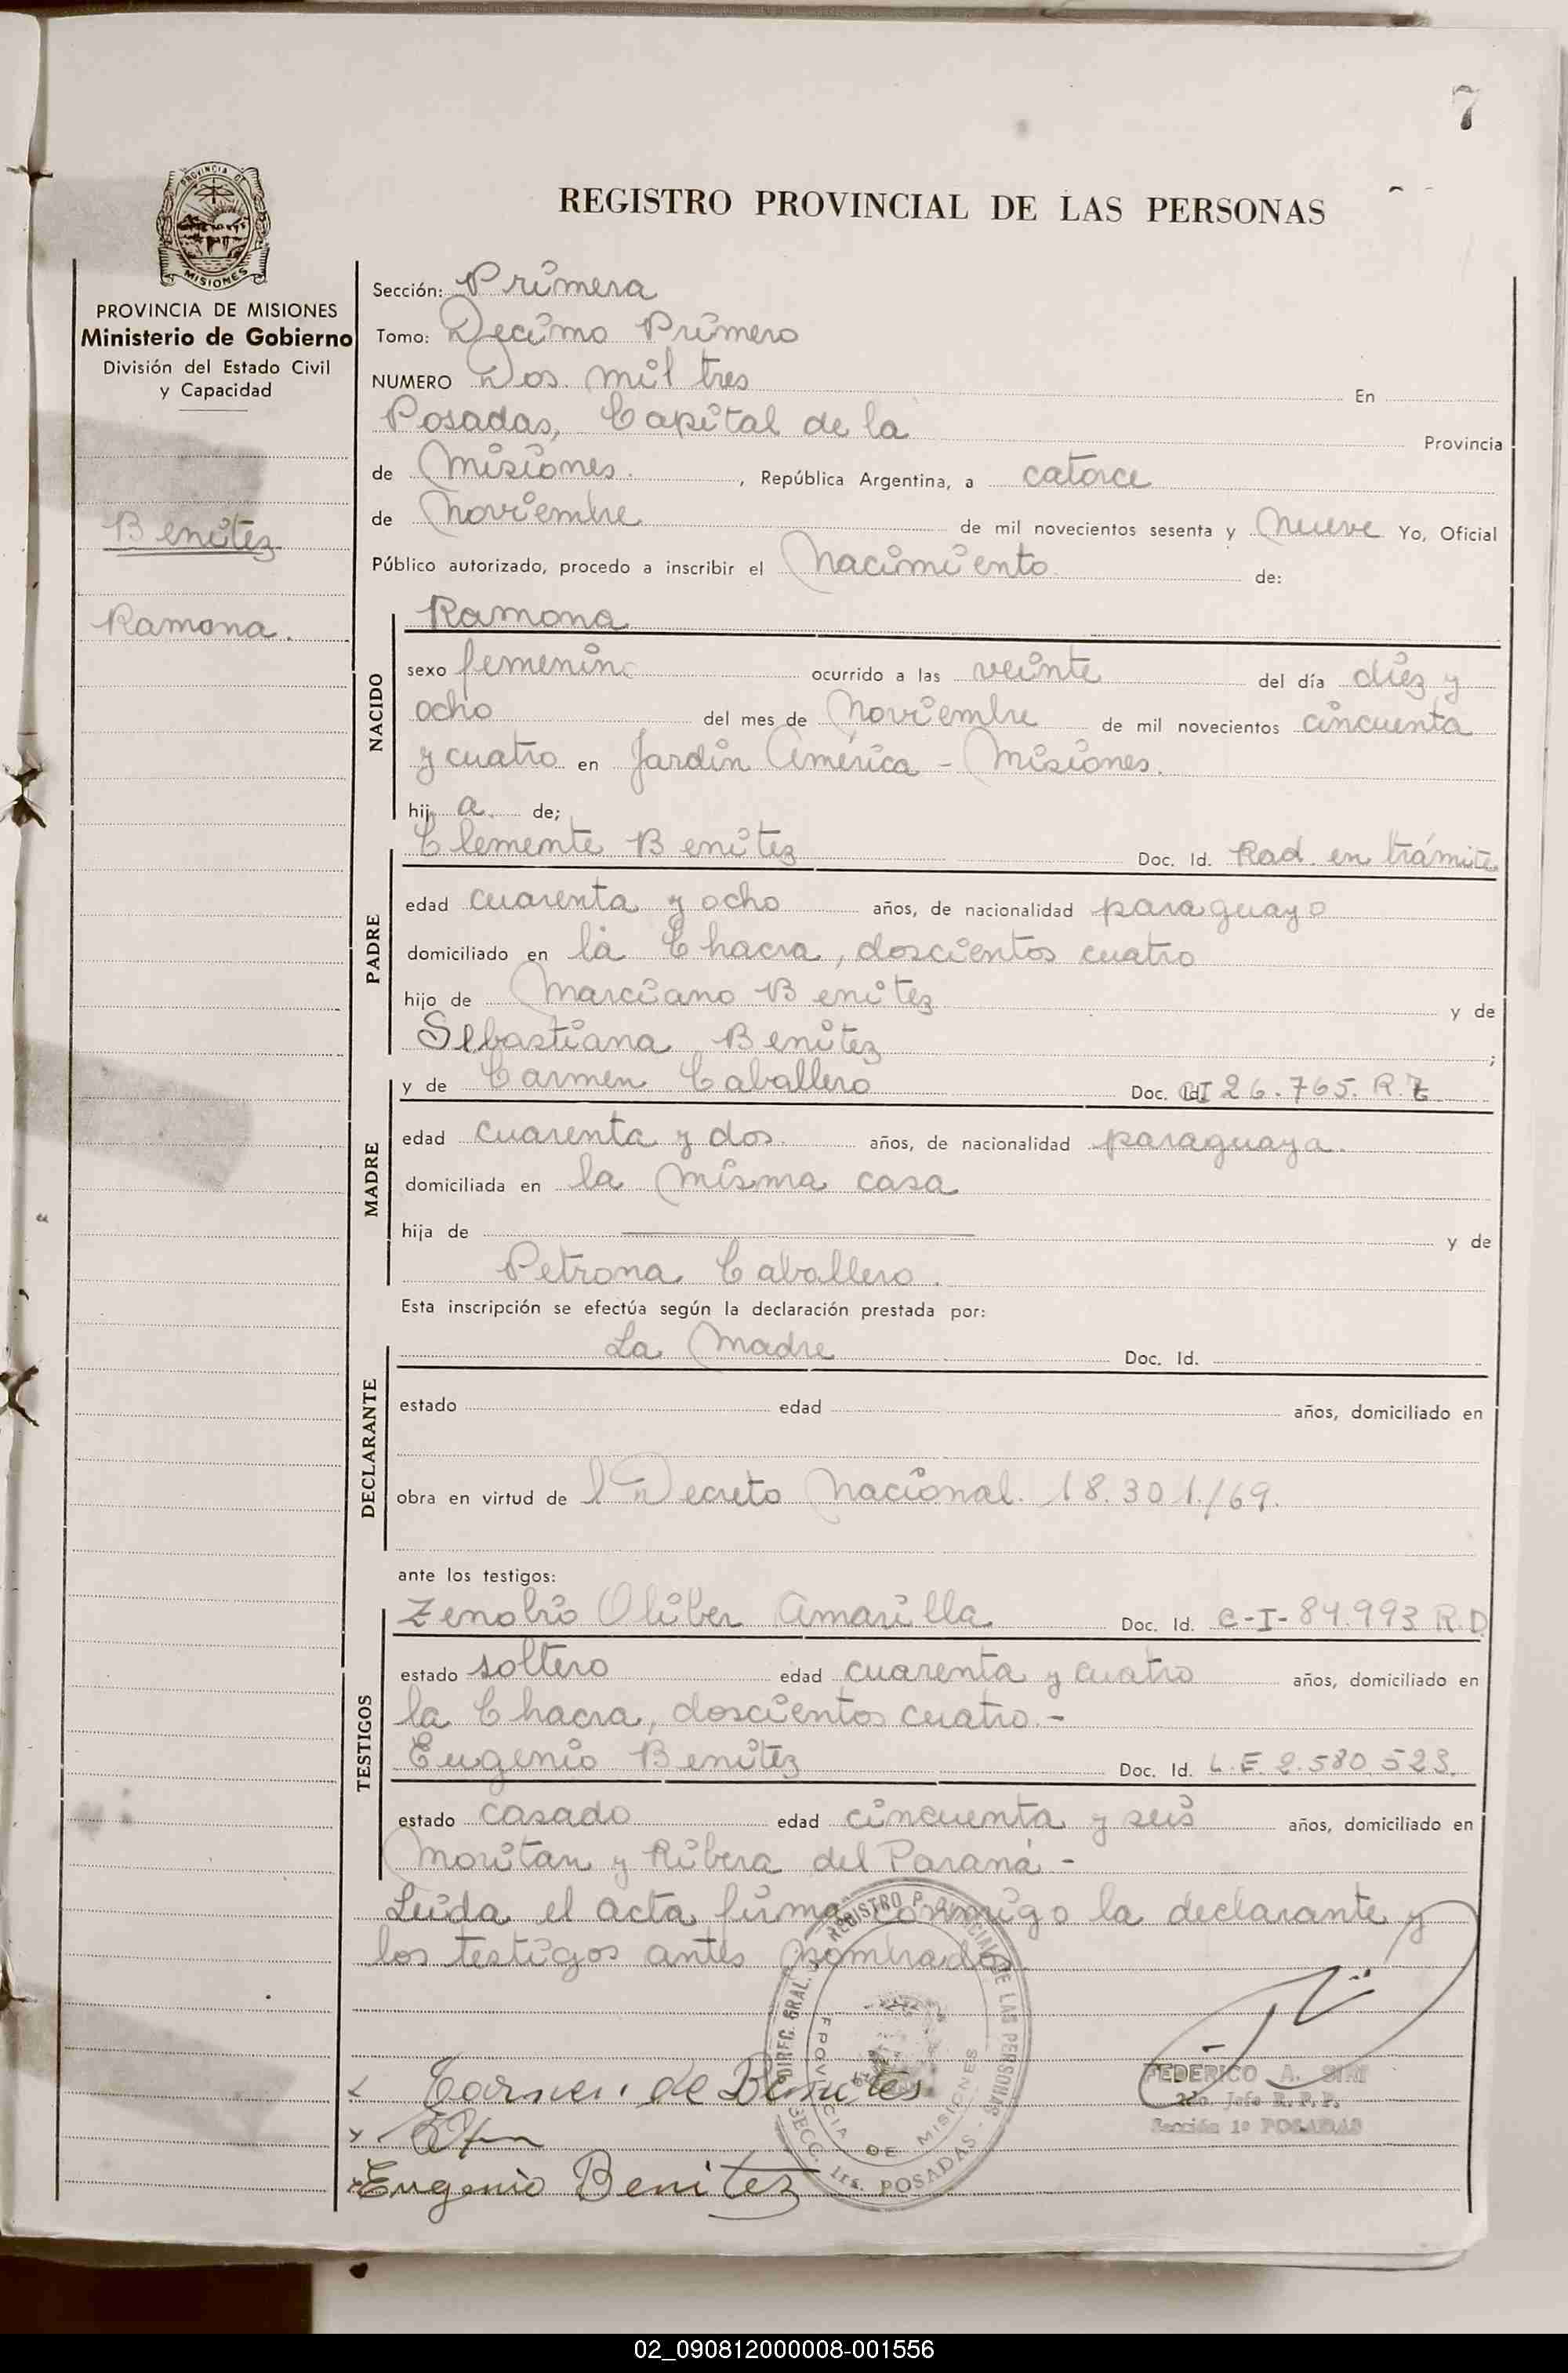 7
PROVINCIA DE
MISIONES
REGISTRO PROVINCIAL DE LAS PERSONAS
PROVINCIA DE MISIONES
Ministerio de Gobierno
División del Estado Civil
y Capacidad
Benitez
Ramona.
Sección: Primera
Tomo: Decimo Primero
NUMERO Dos mil tres En
Posadas, Capital de la Provincia
de Misiones. , República Argentina, a catorce
de Noviembre de mil novecientos sesenta y nueve Yo, Oficial
Público autorizado, procedo a inscribir el Nacimiento de:
NACIDO
Ramona
sexo femenino ocurrido a las veinte del día diez y
ocho del mes de Noviembre de mil novecientos cincuenta
y cuatro en Jardin América - Misiones.
hij a. de;
PADRE
Clemente Benitez Doc. Id. Rad. en trámite
edad cuarenta y ocho años, de nacionalidad paraguayo
domiciliado en la Chacra, doscientos cuatro
hijo de Marciano Benitez y de
Sebastiana Benitez ;
MADRE
y de Carmen Caballero Doc. Id. CI 26.765. R.Z
edad cuarenta y dos. años, de nacionalidad paraguaya.
domiciliada en la misma casa
hija de y de
Petrona Caballero.
Esta inscripción se efectúa según la declaración prestada por:
DECLARANTE
La Madre Doc. Id.
estado edad años, domiciliado en
obra en virtud de l Decreto Nacional. 18.301./69.
ante los testigos:
TESTIGOS
Zenobio Oliber Amarilla Doc. Id. C-I-84.993 R.D.
estado soltero edad cuarenta y cuatro años, domiciliado en
la Chacra, doscientos cuatro.-
Eugenio Benitez Doc. Id. L.E. 2.580.523.
estado casado edad cincuenta y seis años, domiciliado en
Moritan y Ribera del Paraná.-
Leida el acta, firma conmigo la declarante y
los testigos antes nombrados
DIREC. GRAL. REGISTRO PROVINCIAL DE LAS PERSONAS
PROVINCIA DE MISIONES
SECC. 1ra. POSADAS
Carmen de Benites
FEDERICO A. SIRI
2do. Jefe R. P. P.
Sección 1º POSADAS
Eugenio Benitez
02_090812000008-001556